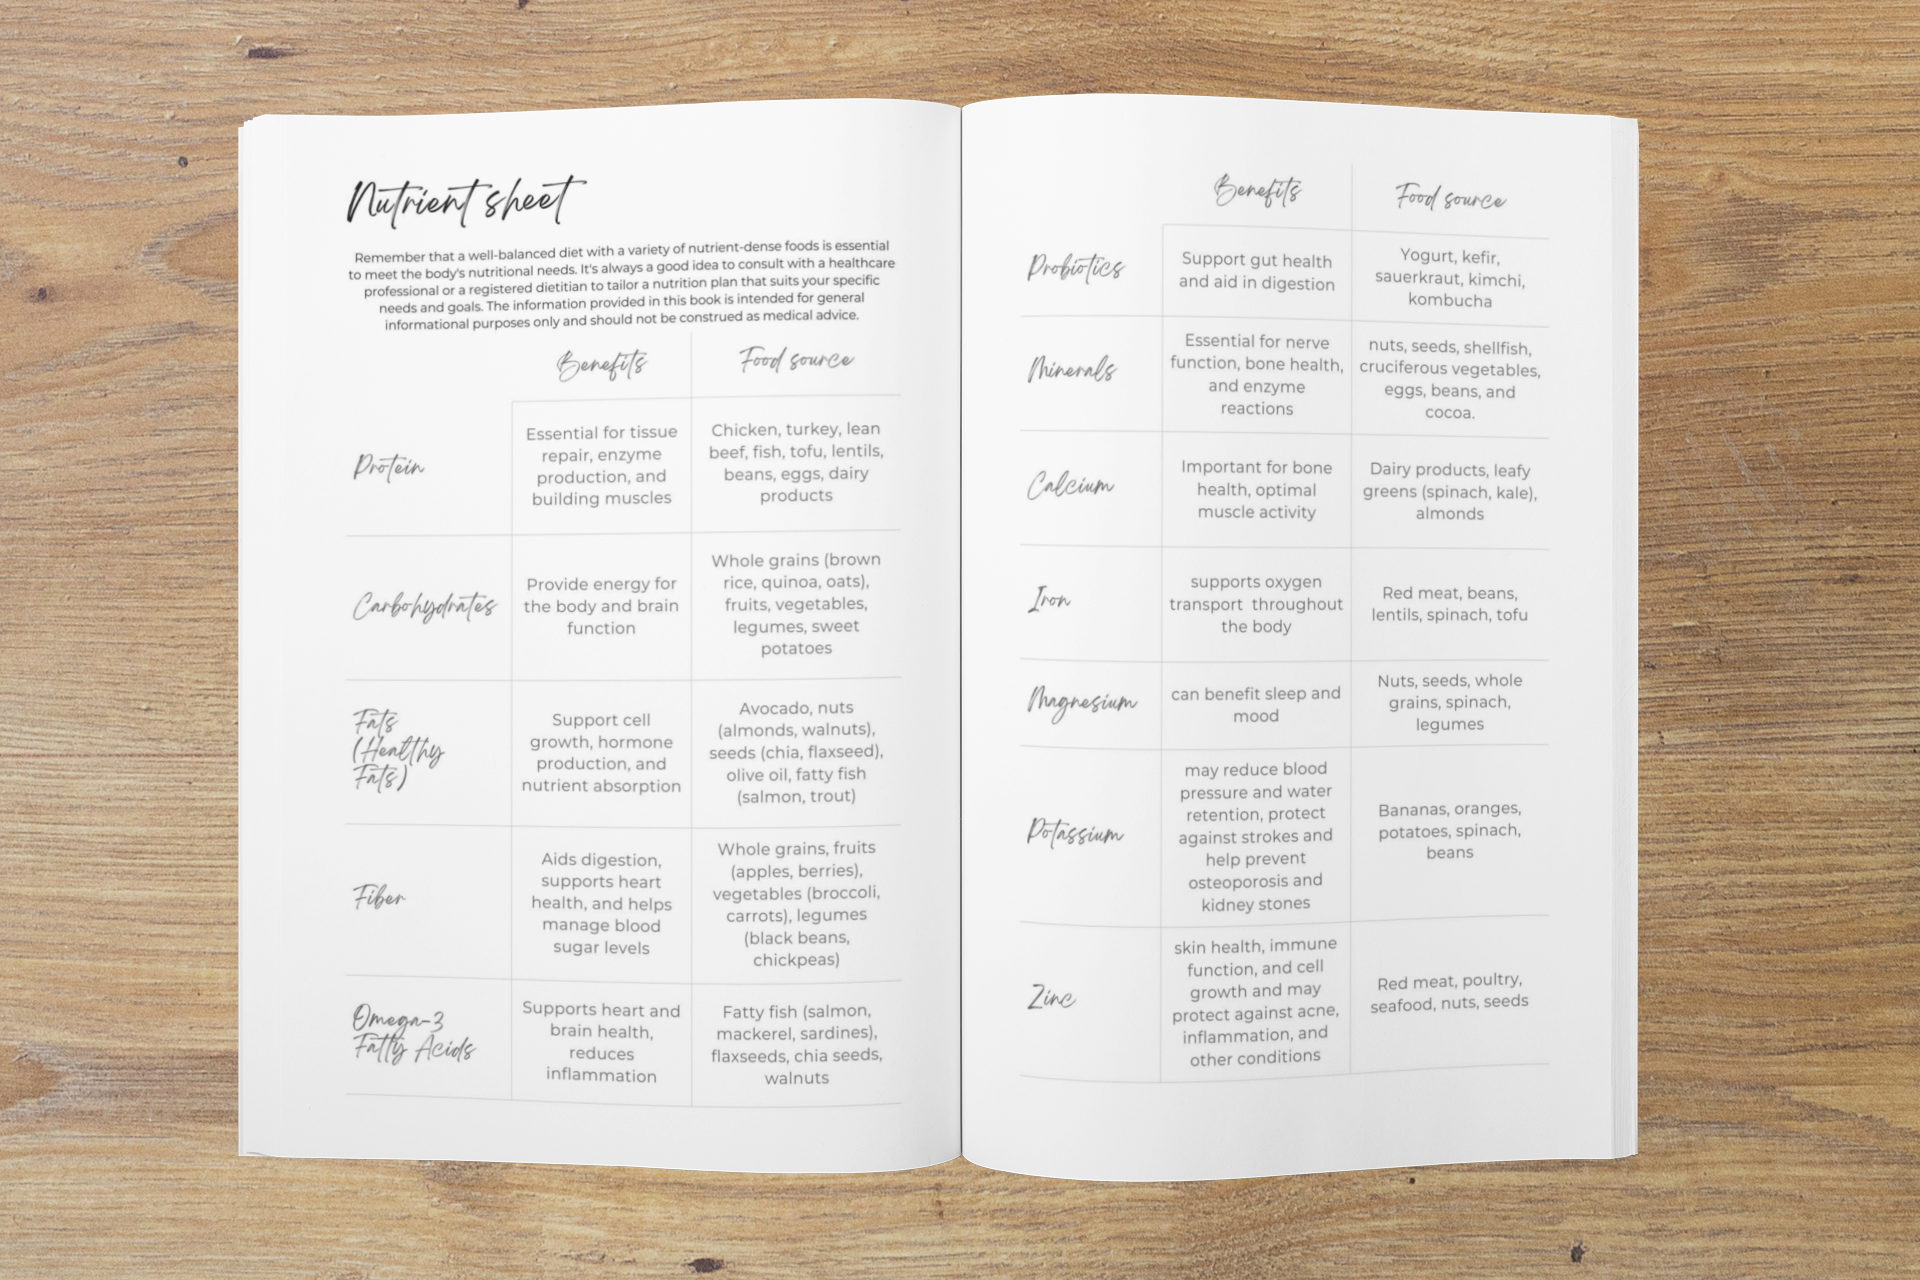 Nutrient sheet
Remember that a well-balanced diet with a variety of nutrient-dense foods is essential
to meet the body's nutritional needs. It's always a good idea to consult with a healthcare
professional or a registered dietitian to tailor a nutrition plan that suits your specific
needs and goals. The information provided in this book is intended for general
informational purposes only and should not be construed as medical advice.
Benefits
Food source
Protein
Essential for tissue
repair, enzyme
production, and
building muscles
Chicken, turkey, lean
beef, fish, tofu, lentils,
beans, eggs, dairy
products
Carbohydrates
Provide energy for
the body and brain
function
Whole grains (brown
rice, quinoa, oats),
fruits, vegetables,
legumes, sweet
potatoes
Fats
(Healthy
Fats)
Support cell
growth, hormone
production, and
nutrient absorption
Avocado, nuts
(almonds, walnuts),
seeds (chia, flaxseed),
olive oil, fatty fish
(salmon, trout)
Fiber
Aids digestion,
supports heart
health, and helps
manage blood
sugar levels
Whole grains, fruits
(apples, berries),
vegetables (broccoli,
carrots), legumes
(black beans,
chickpeas)
Omega-3
Fatty Acids
Supports heart and
brain health,
reduces
inflammation
Fatty fish (salmon,
mackerel, sardines),
flaxseeds, chia seeds,
walnuts
Benefits
Food source
Probiotics
Support gut health
and aid in digestion
Yogurt, kefir,
sauerkraut, kimchi,
kombucha
Minerals
Essential for nerve
function, bone health,
and enzyme
reactions
nuts, seeds, shellfish,
cruciferous vegetables,
eggs, beans, and
cocoa.
Calcium
Important for bone
health, optimal
muscle activity
Dairy products, leafy
greens (spinach, kale),
almonds
Iron
supports oxygen
transport throughout
the body
Red meat, beans,
lentils, spinach, tofu
Magnesium
can benefit sleep and
mood
Nuts, seeds, whole
grains, spinach,
legumes
Potassium
may reduce blood
pressure and water
retention, protect
against strokes and
help prevent
osteoporosis and
kidney stones
Bananas, oranges,
potatoes, spinach,
beans
Zinc
skin health, immune
function, and cell
growth and may
protect against acne,
inflammation, and
other conditions
Red meat, poultry,
seafood, nuts, seeds